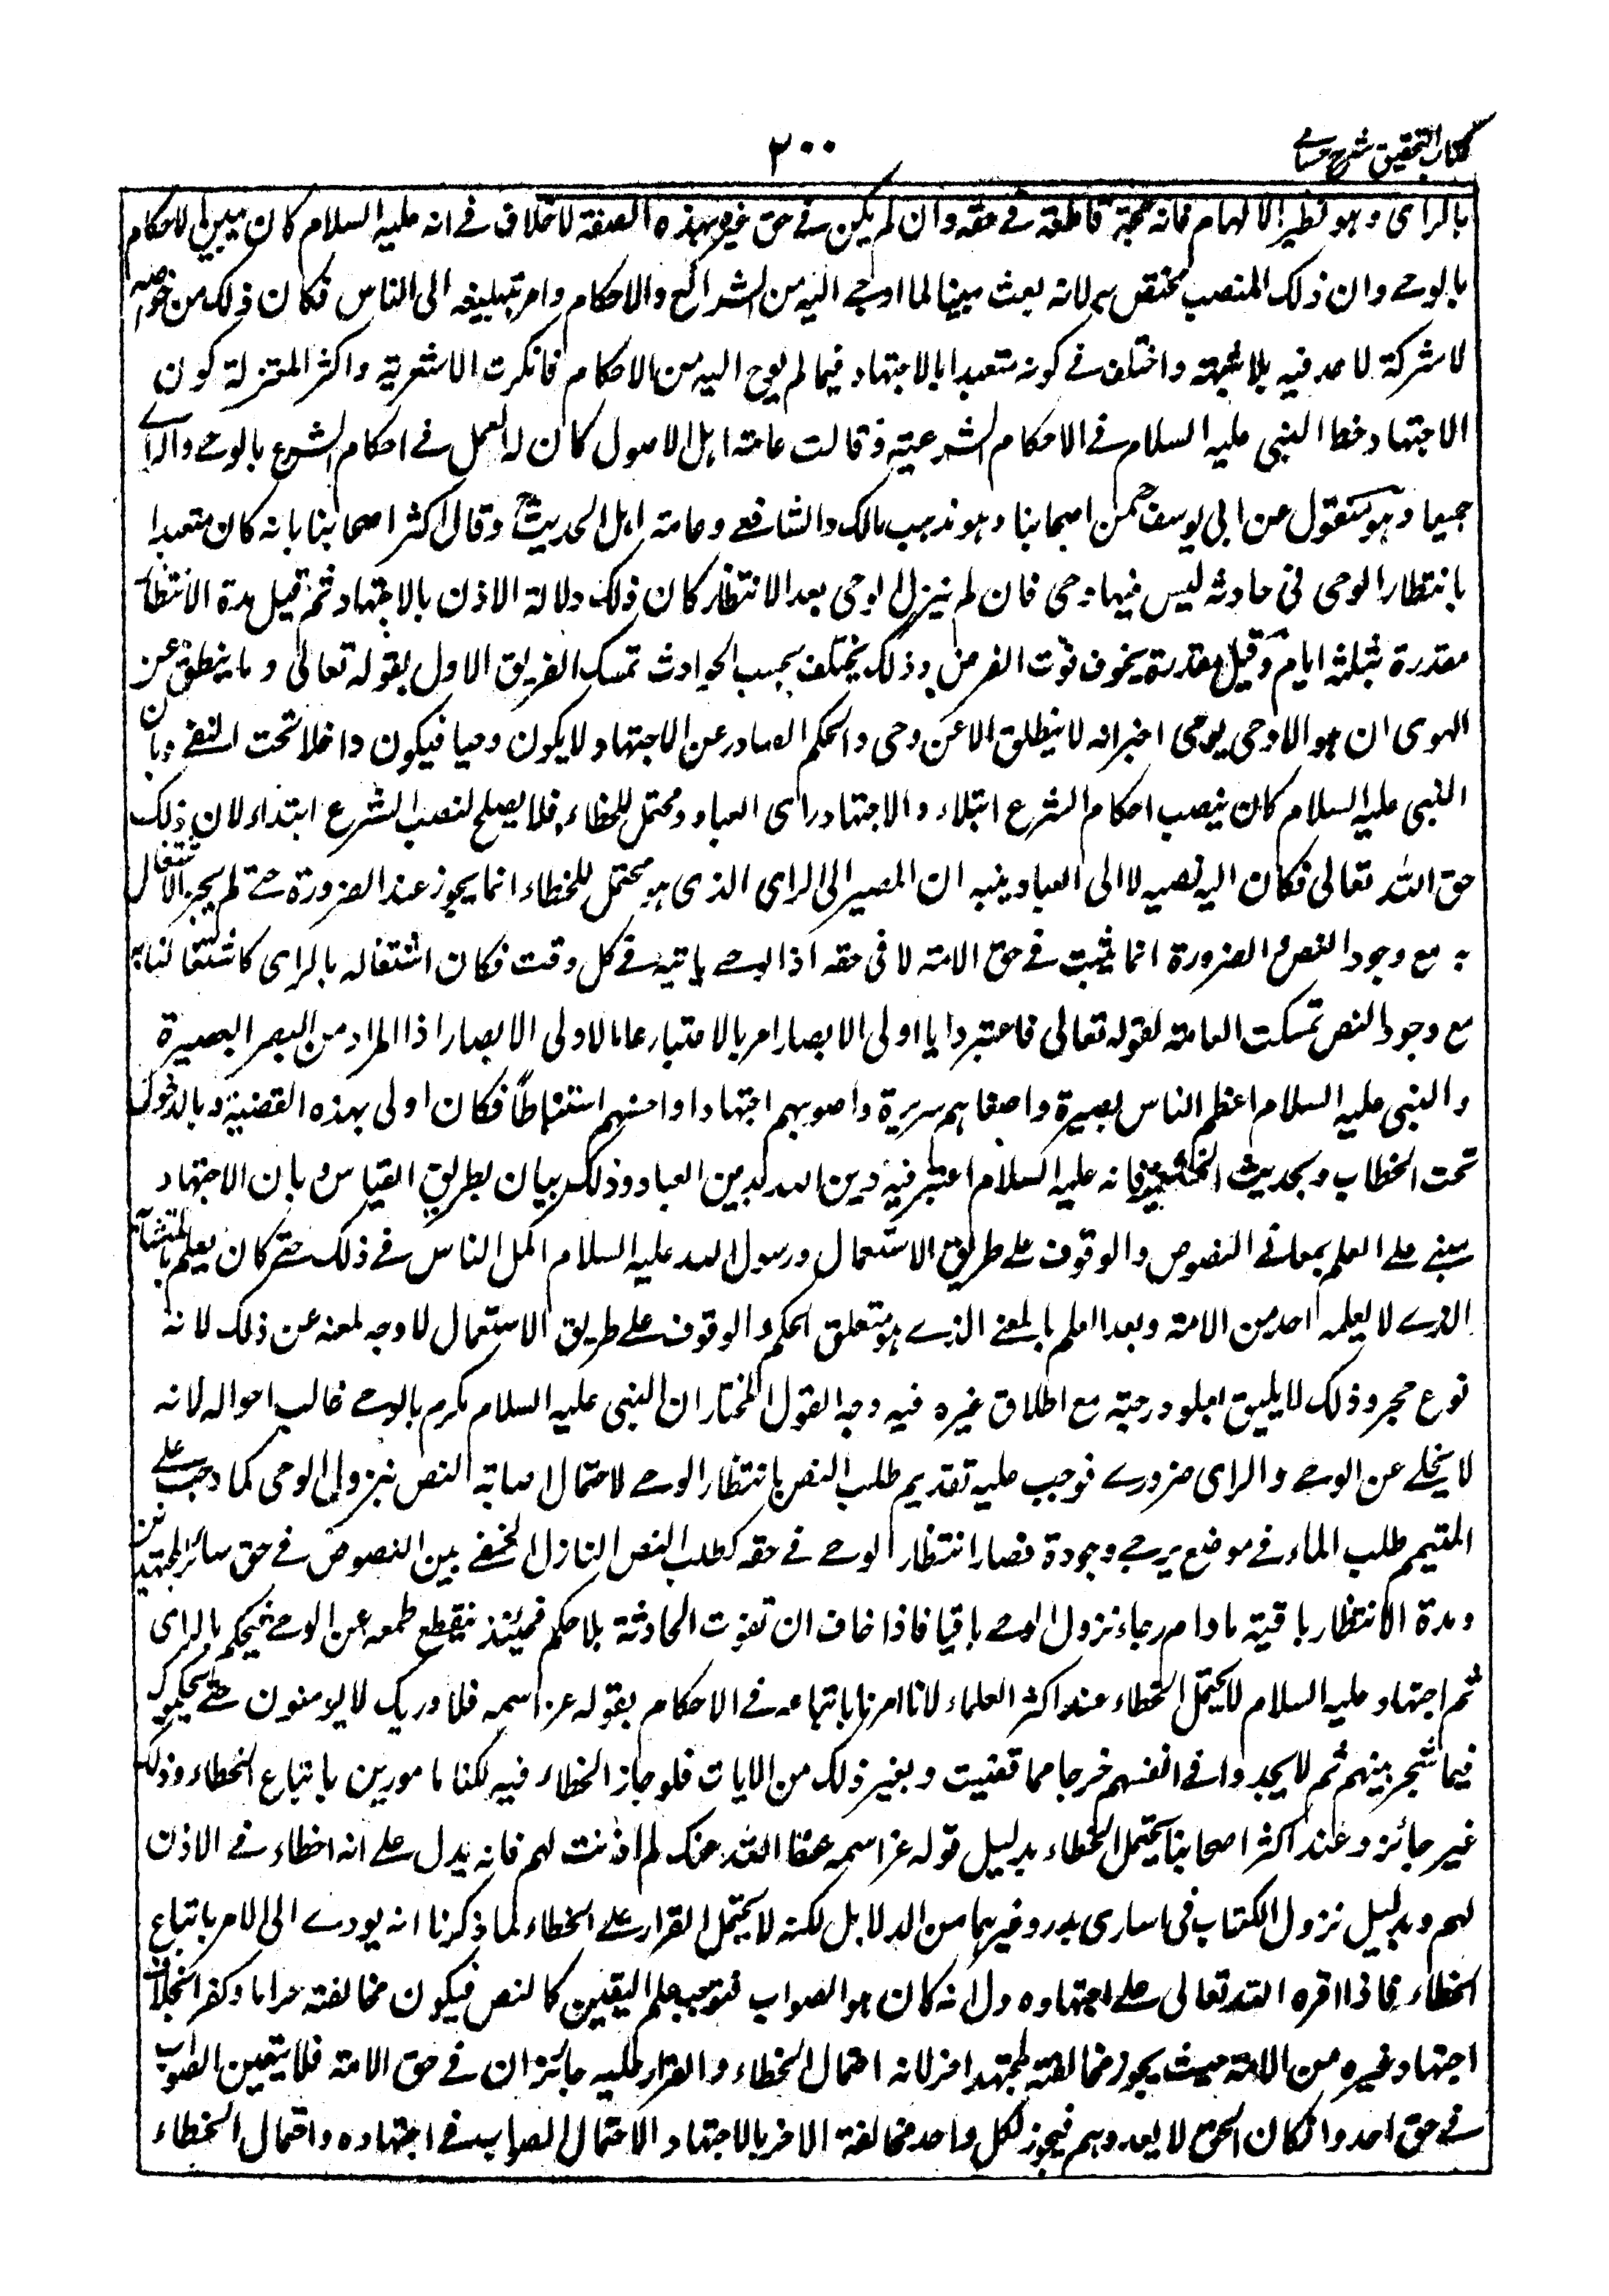 كتاب التحقيق شرح حسامي
٢٠٠
بالراى وهو نظير الالهام فانه حجة قاطعة في حقه وان لم يكن في حق غيره بهذه الصفة لا خلاف في انه عليه السلام كان يبين الاحكام
بالوحي وان ذلك المنصب مختص به لانه بعث مبينا لما اوحي اليه من الشرائع والاحكام وامر بتبليغه الى الناس فكان ذلك من خواصه
لا شركة لاحد فيه بلا شبهة واختلف في كونه متعبدا بالاجتهاد فيما لم يوح اليه من الاحكام فانكرت الاشعرية واكثر المعتزلة كون
الاجتهاد حظا النبى عليه السلام في الاحكام الشرعية وقالت عامة اهل الاصول كان له العمل في احكام الشرع بالوحي والراي
جميعا وهو منقول عن ابي يوسف رح من اصحابنا وهو مذهب مالك والشافعي وعامة اهل الحديث وقال اكثر اصحابنا بانه كان متعبدا
بانتظار الوحى فى حادثة ليس فيها وحى فان لم ينزل الوحى بعد الانتظار كان ذلك دلالة الاذن بالاجتهاد ثم قيل مدة الانتظار
مقدرة بثلثة ايام وقيل مقدرة بخوف فوت الغرض وذلك يختلف بحسب الحوادث تمسك الفريق الاول بقوله تعالى وما ينطق عن
الهوى ان هو الا وحى يوحى اخبر انه لا ينطق الا عن وحى والحكم الصادر عن الاجتهاد لا يكون وحيا فيكون داخلا تحت النفي وبان
النبى عليه السلام كان ينصب احكام الشرع ابتلاء والاجتهاد راى العباد ومحتمل للخطاء فلا يصلح لنصب الشرع ابتداء لان ذلك
حق الله تعالى فكان اليه نصبه لا الى العباد يبنه ان المصير الى الراى الذى هو محتمل للخطاء انما يجوز عند الضرورة حتى لم يجز الاشتغال
به مع وجود النص والضرورة انما يثبت في حق الامة لا فى حقه اذ الوحي ياتيه في كل وقت فكان اشتغاله بالراى كاشتغالنا به
مع وجود النص تمسكت العامة لقوله تعالى فاعتبروا يا اولى الابصار امر بالاعتبار عاما لاولى الابصار اذ المراد من البصر البصيرة
والنبى عليه السلام اعظم الناس بصيرة واصفاهم سريرة واصوبهم اجتهادا واحسنهم استنباطاً فكان اولى بهذه القضية وبالدخول
تحت الخطاب وبحديث الخثعمية فانه عليه السلام اعتبر فيه دين الله بدين العباد وذلك بيان بطريق القياس وبان الاجتهاد
مبني على العلم بمعاني النصوص والوقوف على طريق الاستعمال ورسول الله عليه السلام اكمل الناس في ذلك حتى كان يعلم بالمتشابه
الذي لا يعلمه احد من الامة وبعد العلم بالمعنى الذي هو متعلق الحكم والوقوف على طريق الاستعمال لا وجه لمنعه عن ذلك لانه
نوع حجر وذلك لا يليق بعلو درجته مع اطلاق غيره فيه وجه القول المختار ان النبى عليه السلام مكرم بالوحي غالب احواله لانه
لا يخلى عن الوحي والراى ضروري فوجب عليه تقديم طلب النص بانتظار الوحي لاحتمال اصابة النص بنزول الوحى كما وجب على
المتيمم طلب الماء في موضع يرجى وجوده فصار انتظار الوحي في حقه كطلب النص النازل الخفي بين النصوص في حق سائر المجتهدين
ومدة الانتظار باقية ما دام رجاء نزول الوحي باقيا فاذا خاف ان تفوت الحادثة بلا حكم فحينئذ ينقطع طمعه عن الوحي فيحكم بالراى
ثم اجتهاد عليه السلام لا يحتمل الخطاء عند اكثر العلماء لانا امرنا باتباعه في الاحكام بقوله عز اسمه فلا وربك لا يومنون حتى يحكموك
فيما شجر بينهم ثم لا يجدوا في انفسهم حرجا مما قضيت وبغير ذلك من الايات فلو جاز الخطاء فيه لكنا مامورين باتباع الخطاء وذلك
غير جائز وعند اكثر اصحابنا يحتمل الخطاء بدليل قوله عز اسمه عفا الله عنك لم اذنت لهم فانه يدل على انه اخطاء في الاذن
لهم وبدليل نزول الكتاب فى اسارى بدر وغيرهما من الدلايل لكنه لا يحتمل القرار على الخطاء لما ذكرنا انه يودي الى الامر باتباع
الخطاء فاذا اقره الله تعالى على اجتهاده دل انه كان هو الصواب فتوجب علم اليقين كالنص فيكون مخالفته حراما وكفرا بخلاف
اجتهاد غيره من الامة حيث يجوز مخالفته لمجتهد اخر لانه احتمال الخطاء والقرار عليه جائزان في حق الامة فلا يتعين الصواب
في حق احد وان كان الحق لا يعدوهم فيجوز لكل واحد مخالفة الاخر بالاجتهاد لاحتمال الصواب في اجتهاده واحتمال الخطاء